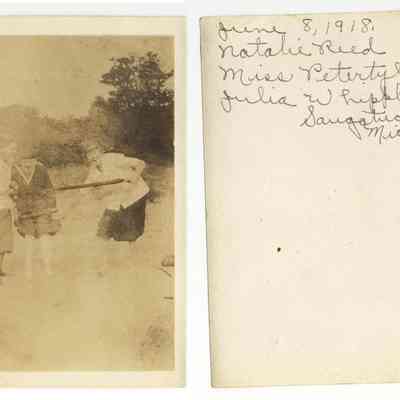 June 8, 1918.
Natalie Reed
Miss Petertyl
Julia Whippl
Saugatuc
Mic